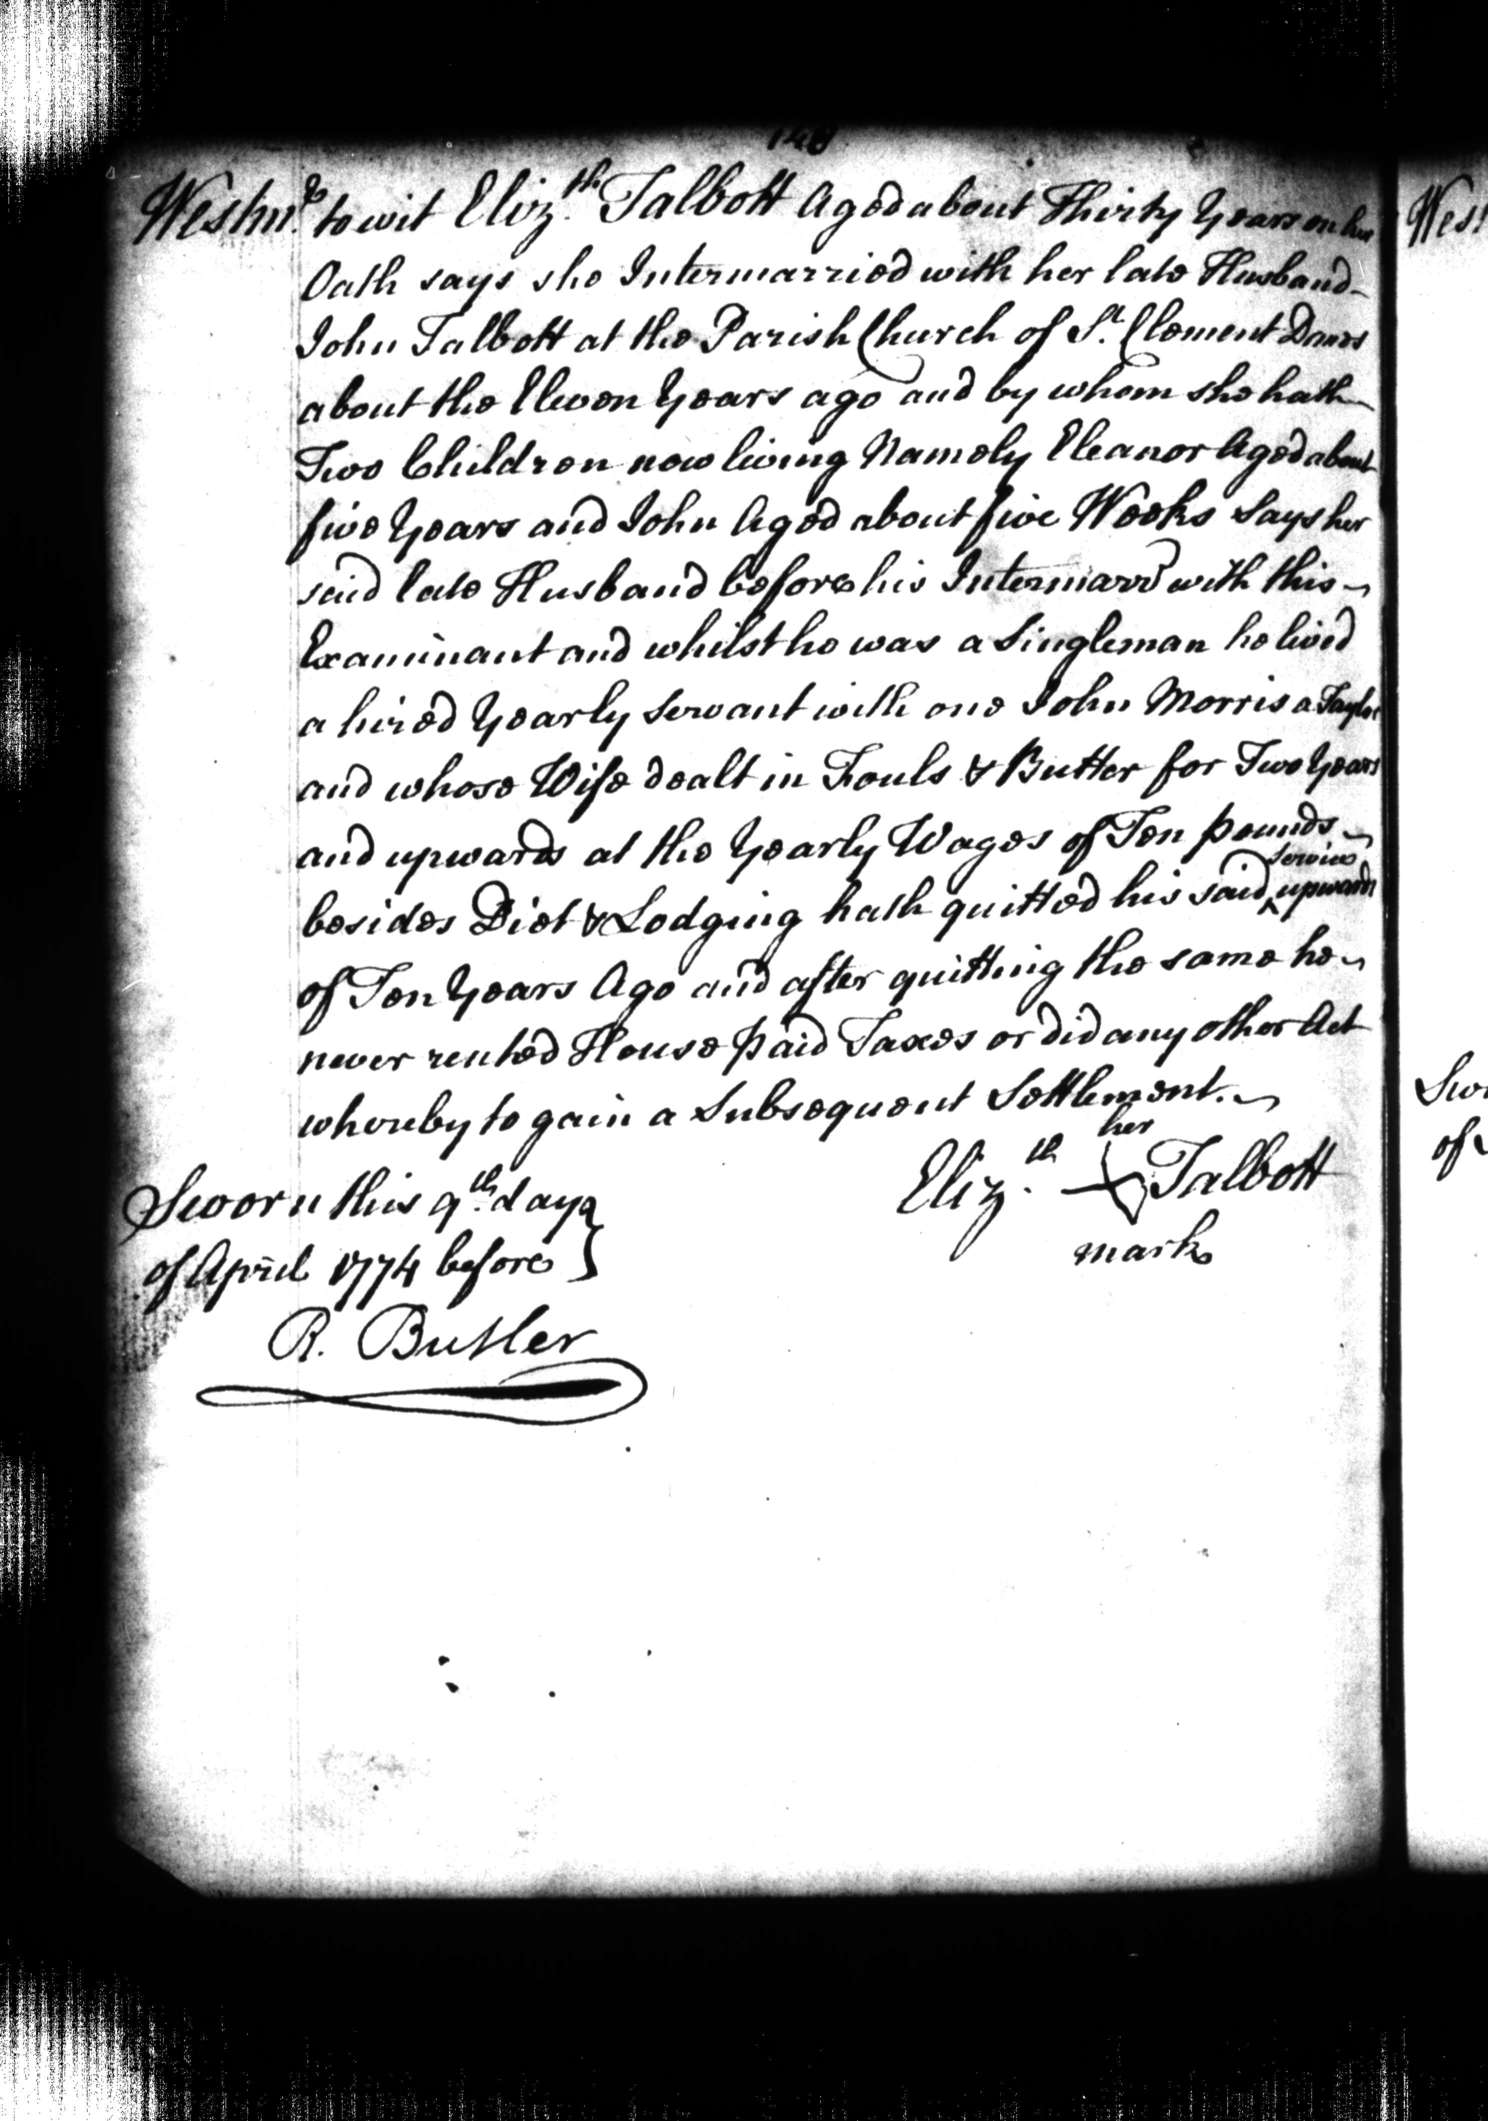 148
Westmr. to wit Elizth. Talbott Aged about Thirty Years on her
Oath says she Intermarried with her late Husband
John Talbott at the Parish Church of St. Clement Danes
about the Eleven Years ago and by whom she hath
Two Children now living Namely Eleanor Aged about
five Years and John Aged about five Weeks Says her
said late Husband before his Intermarrd with this
Examinant and whilst he was a Singleman he lived
a hired Yearly Servant with one John Morris a Taylor
and whose Wife dealt in Fouls & Butter for Two Years
and upwards at the Yearly Wages of Ten pounds
besides Diet & Lodging hath quitted his said ^ service upwards
of Ten Years Ago and after quitting the same he
never rented House paid Taxes or did any other Act
whereby to gain a Subsequent Settlement.
her
Elizth. Talbott
mark
Sworn this 9th. day
of April 1774 before
R. Butler
West
Swor
of